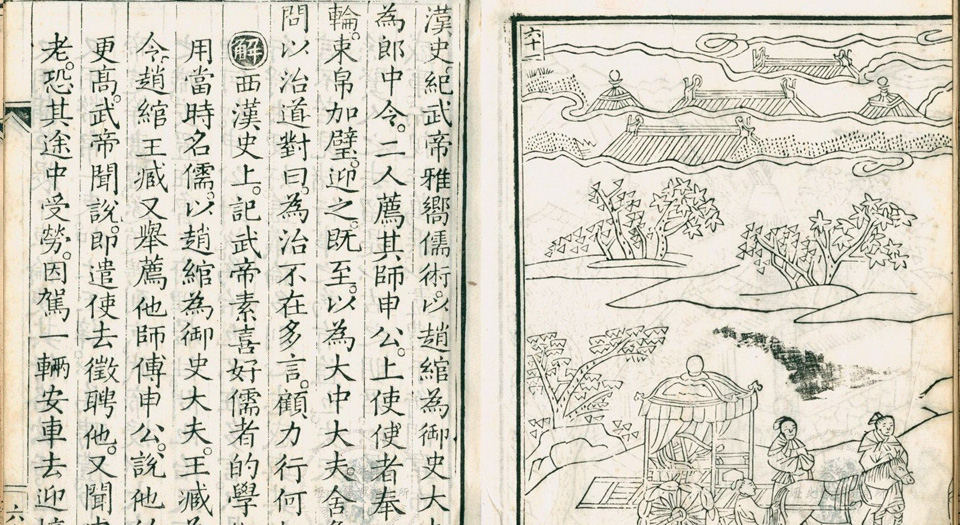 六十一
漢史紀武帝雅嚮儒術。以趙綰為御史大
為郎中令。二人薦其師申公。上使使者奉
輪。束帛加璧。迎之。既至。以為大中大夫。舍
問以治道對曰。為治不在多言。顧力行何
解 西漢史上。記武帝素喜好儒者的學
用當時名儒。以趙綰為御史大夫。王臧為
令。趙綰王臧又舉薦他師傅申公。說他
更高。武帝聞說。即遣使去徵聘他。又聞
老。恐其途中受勞。因駕一輛安車去迎
六